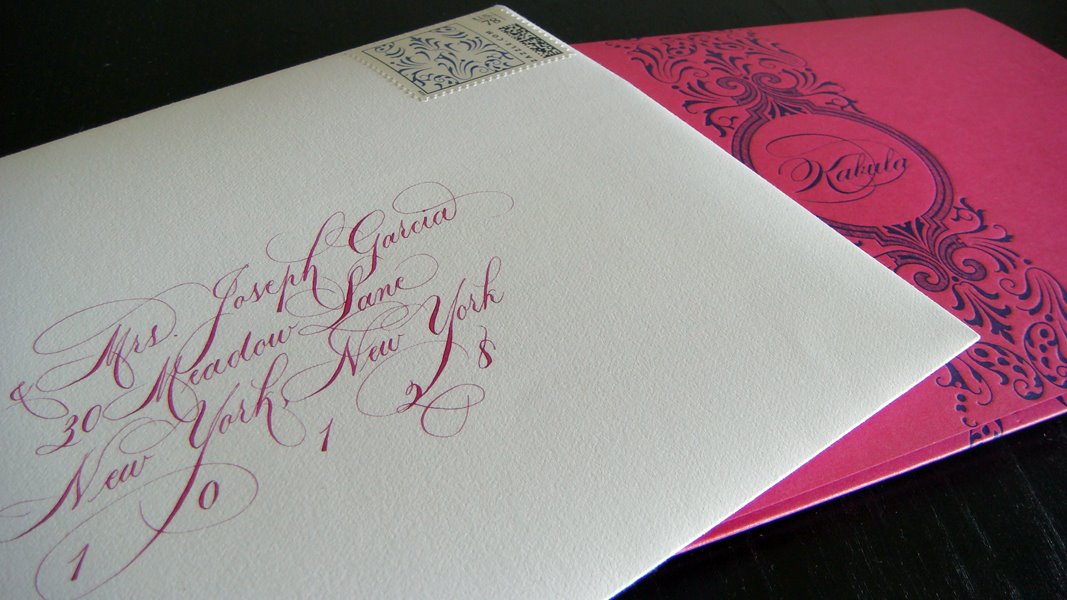 & Mrs. Joseph Garcia
30 Meadow Lane
New York, New York
1 0 1 2 8
ZAZZLE.COM
Kakula